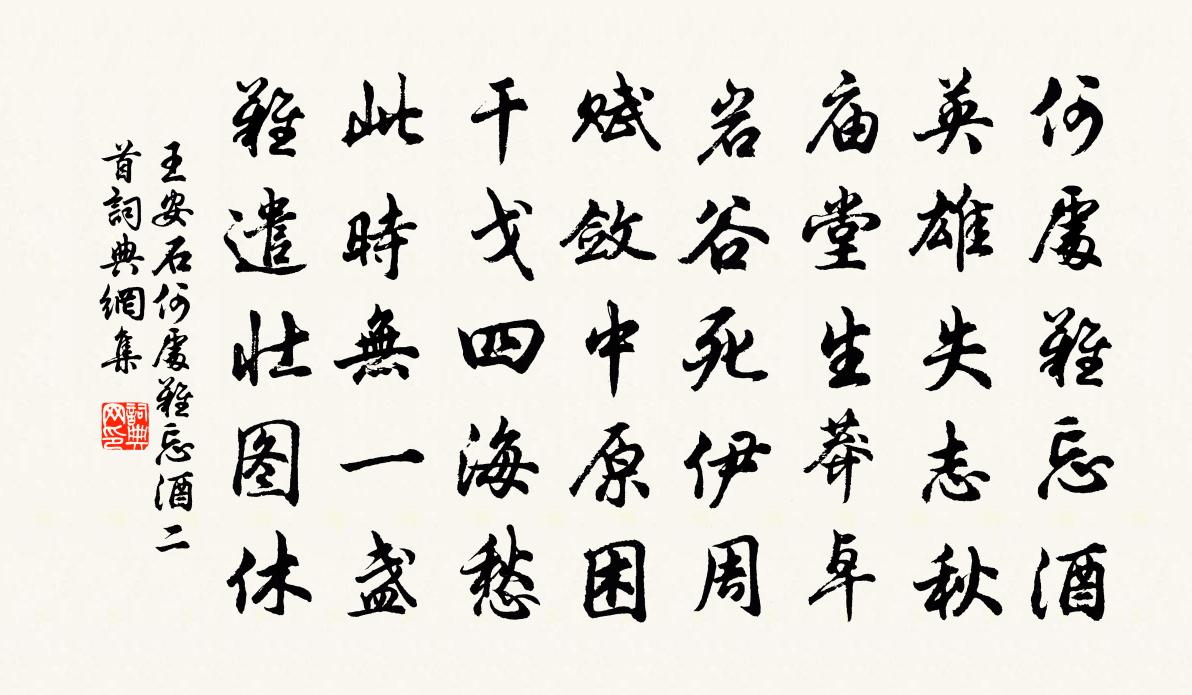 何處難忘酒
英雄失志秋
庙堂生莽卓
岩谷死伊周
賦斂中原困
干戈四海愁
此時無一盞
難遣壯图休
王安石何處難忘酒二
首詞典網集
詞典
网印